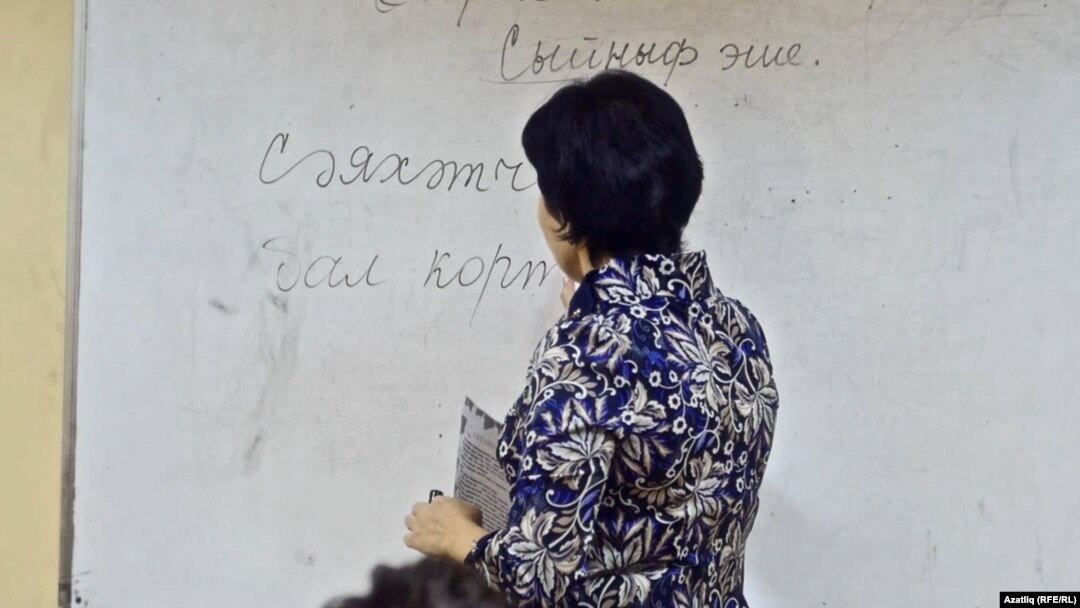 Сыйныф эше.
Сәяхәтч
бал корт
Azatliq (RFE/RL)